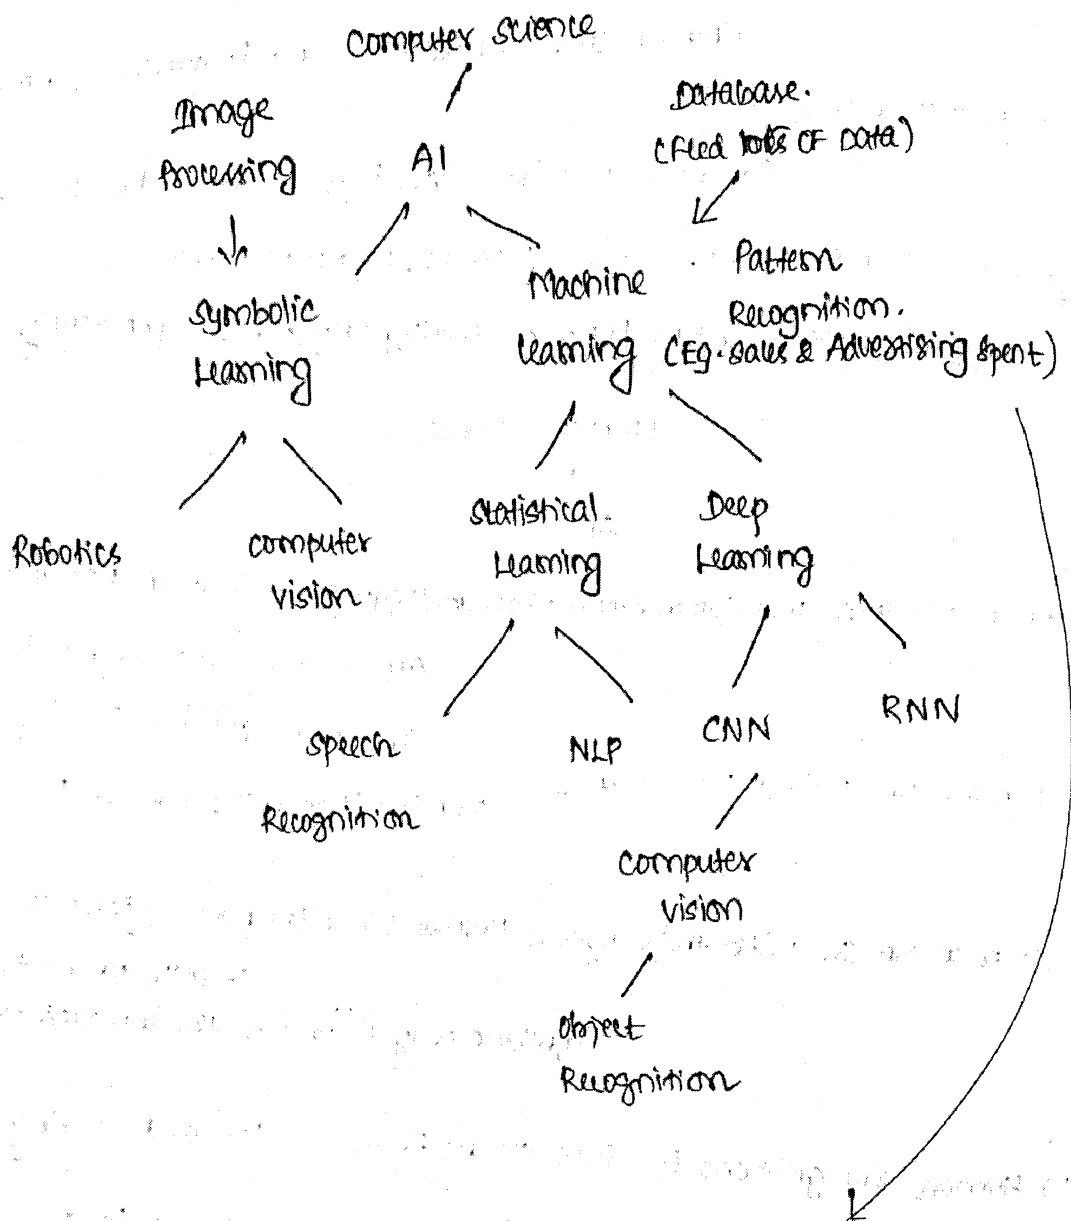 Computer Science
Image
Processing
AI
Database.
(Feed lots OF Data)
Symbolic
Learning
Machine
Learning
Pattern
Recognition.
(Eg. Sales & Advertising Spent)
Robotics
Computer
Vision
Statistical
Learning
Deep
Learning
Speech
Recognition
NLP
CNN
RNN
Computer
Vision
Object
Recognition